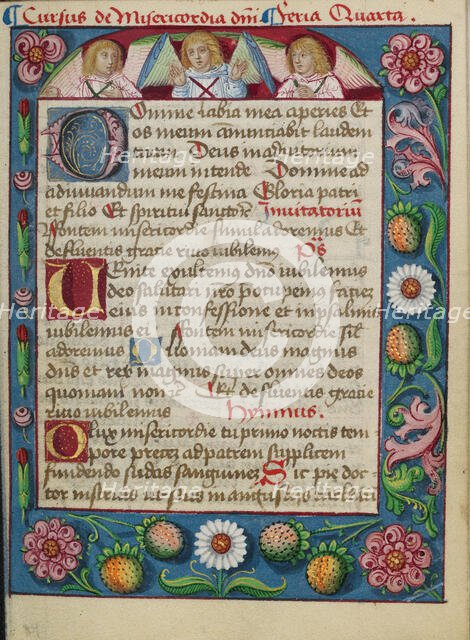 Cursus de Misericordia dni Feria Quarta.
Domine labia mea aperies Et
os meum annunciabit laudem
tuam Deus in adiutorium
meum intende Domine ad
adiuuandum me festina Gloria patri
et filio Et spiritui sancto Inuitatoriu
Fontem misericordie summu adoremus Et
defluentis gracie riuo iubilemus ps
Uenite exultemus dno iubilemus
deo salutari nro preocupemus faciez
eius in confessione et in psalmis
iubilemus ei Fontem misericordie
adoremus Quoniam deus magnus
dns et rex magnus super omnes deos
quoniam non defluentis gracie
riuo iubilemus Hymnus.
O lux misericordie tu primo noctis tem
pore preces ad patrem supplicem
fundendo sudas sanguinez Sic pie doc
tor